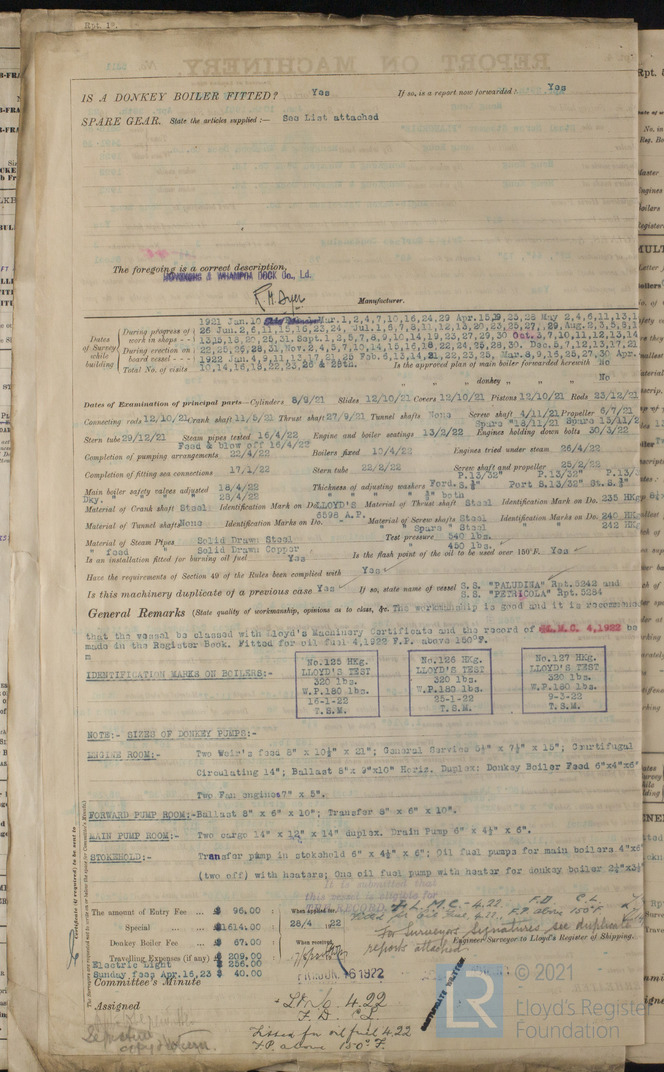 Rpt. 1a.
IS A DONKEY BOILER FITTED? Yes If so, is a report now forwarded? Yes
SPARE GEAR. State the articles supplied :— See List attached
The foregoing is a correct description,
HONGKONG & WHAMPOA DOCK Co., Ld.
Manufacturer.
Dates of Survey while building
During progress of work in shops - -
During erection on board vessel - - -
Total No. of visits
1921 Jan.10 Mar.1,2,4,7,10,16,24,29 Apr.15,19,25,28 May 2,4,6,11,13,1
26 Jun.2,6,11,15,16,23,24, Jul.1,6,7,8,11,12,13,20,23,25,27,29,Aug.2,3,5,9,1
13,15,18,20,25,31.Sept.1,2,5,7,8,9,10,14,19,23,27,29,30 Oct.3,7,10,11,12,13,14
22,25,26,28,31,Nov.2,4,5,7,10,14,15,16,18,22,24,25,28,30. Dec.5,7,12,13,17,21
1922 Jan.4,9,11,13,17,21,25 Feb.6,13,14,21,22,23,25, Mar.8,9,16,25,27,30 Apr.
10,14,16,18,22,23,26 & 28th. Is the approved plan of main boiler forwarded herewith No
" " " donkey " " " No
Dates of Examination of principal parts—Cylinders 8/9/21 Slides 12/10/21 Covers 12/10/21 Pistons 12/10/21 Rods 23/12/21
Connecting rods 12/10/21 Crank shaft 11/5/21 Thrust shaft 27/9/21 Tunnel shafts None Screw shaft 4/11/21 Propeller 6/7/21
Spare "18/11/21 Spare 13/11/2
Stern tube 29/12/21 Steam pipes tested 16/4/22 Engine and boiler seatings 13/2/22 Engines holding down bolts 30/3/22
Feed & blow off 16/4/22
Completion of pumping arrangements 22/4/22 Boilers fixed 10/4/22 Engines tried under steam 26/4/22
Completion of fitting sea connections 17/1/22 Stern tube 22/2/22 Screw shaft and propeller 25/2/22
Main boiler safety valves adjusted 18/4/22 Thickness of adjusting washers
Dky. " 28/4/22
Material of Crank shaft Steel Identification Mark on Do. LLOYD'S Material of Thrust shaft Steel Identification Mark on Do. 235 HKg
6598 A.P.
Material of Tunnel shafts None Identification Marks on Do. Material of Screw shafts Steel Identification Marks on Do. 240 HKg
" " Spare " Steel 242 HKg
Material of Steam Pipes Solid Drawn Steel Test pressure 540 lbs.
" feed Solid Drawn Copper 450 lbs.
Is an installation fitted for burning oil fuel Yes Is the flash point of the oil to be used over 150°F. Yes
Have the requirements of Section 49 of the Rules been complied with Yes
Is this machinery duplicate of a previous case Yes If so, state name of vessel S.S. "PALUDINA" Rpt.5242 and
S.S. "PETRICOLA" Rpt.5284
General Remarks (State quality of workmanship, opinions as to class, &c. The workmanship is good and it is recommended
that the vessel be classed with Lloyd's Machinery Certificate and the record of +L.M.C. 4,1922 be
made in the Register Book. Fitted for oil fuel 4,1922 F.P. above 150°F.
m
IDENTIFICATION MARKS ON BOILERS:-
No.125 HKg.
LLOYD'S TEST
320 lbs.
W.P.180 lbs.
16-1-22
T.S.M.
No.126 HKg.
LLOYD'S TEST
320 lbs.
W.P.180 lbs.
25-1-22
T.S.M.
No.127 HKg.
LLOYD'S TEST
320 lbs.
W.P.180 lbs.
9-3-22
T.S.M.
NOTE:- SIZES OF DONKEY PUMPS:-
ENGINE ROOM:- Two Weir's feed 8" x 10½" x 21"; General Service 5½" x 7½" x 15"; Centrifugal
Circulating 14"; Ballast 8"x 9"x10" Horiz. Duplex: Donkey Boiler Feed 6"x4"x6"
Two Fan engines7" x 5".
FORWARD PUMP ROOM:-Ballast 8" x 6" x 10"; Transfer 8" x 6" x 10".
MAIN PUMP ROOM:- Two cargo 14" x 12" x 14" duplex. Drain Pump 6" x 4½" x 6".
STOKEHOLD:- Transfer pump in stokehold 6" x 4½" x 6"; Oil fuel pumps for main boilers 4"x6"
(two off) with heaters; One oil fuel pump with heater for donkey boiler
It is submitted that
this vessel is eligible for
THE RECORD + L.M.C - 4.22 F.D. C.L.
Fitted for oil fuel 4.22 F.P. above 150°F
For Surveyors Signatures see duplicate
reports attached
Engineer Surveyor to Lloyd's Register of Shipping.
The amount of Entry Fee ... $ 96.00
Special ... ... $1614.00
Donkey Boiler Fee ... $ 67.00
Travelling Expenses (if any) $ 209.00
Electric Light $ 256.00
Sunday fees Apr.16,23 $ 40.00
When applied for,
28/4 .22
When received,
Committee's Minute FRI. JUN. 16 1922
Assigned + LMC 4.22
F.D. C.L.
Fitted for oil fuel 4.22
F.P. above 150°F.
CERTIFICATE WRITTEN
© 2021
LR
Lloyd's Register
Foundation